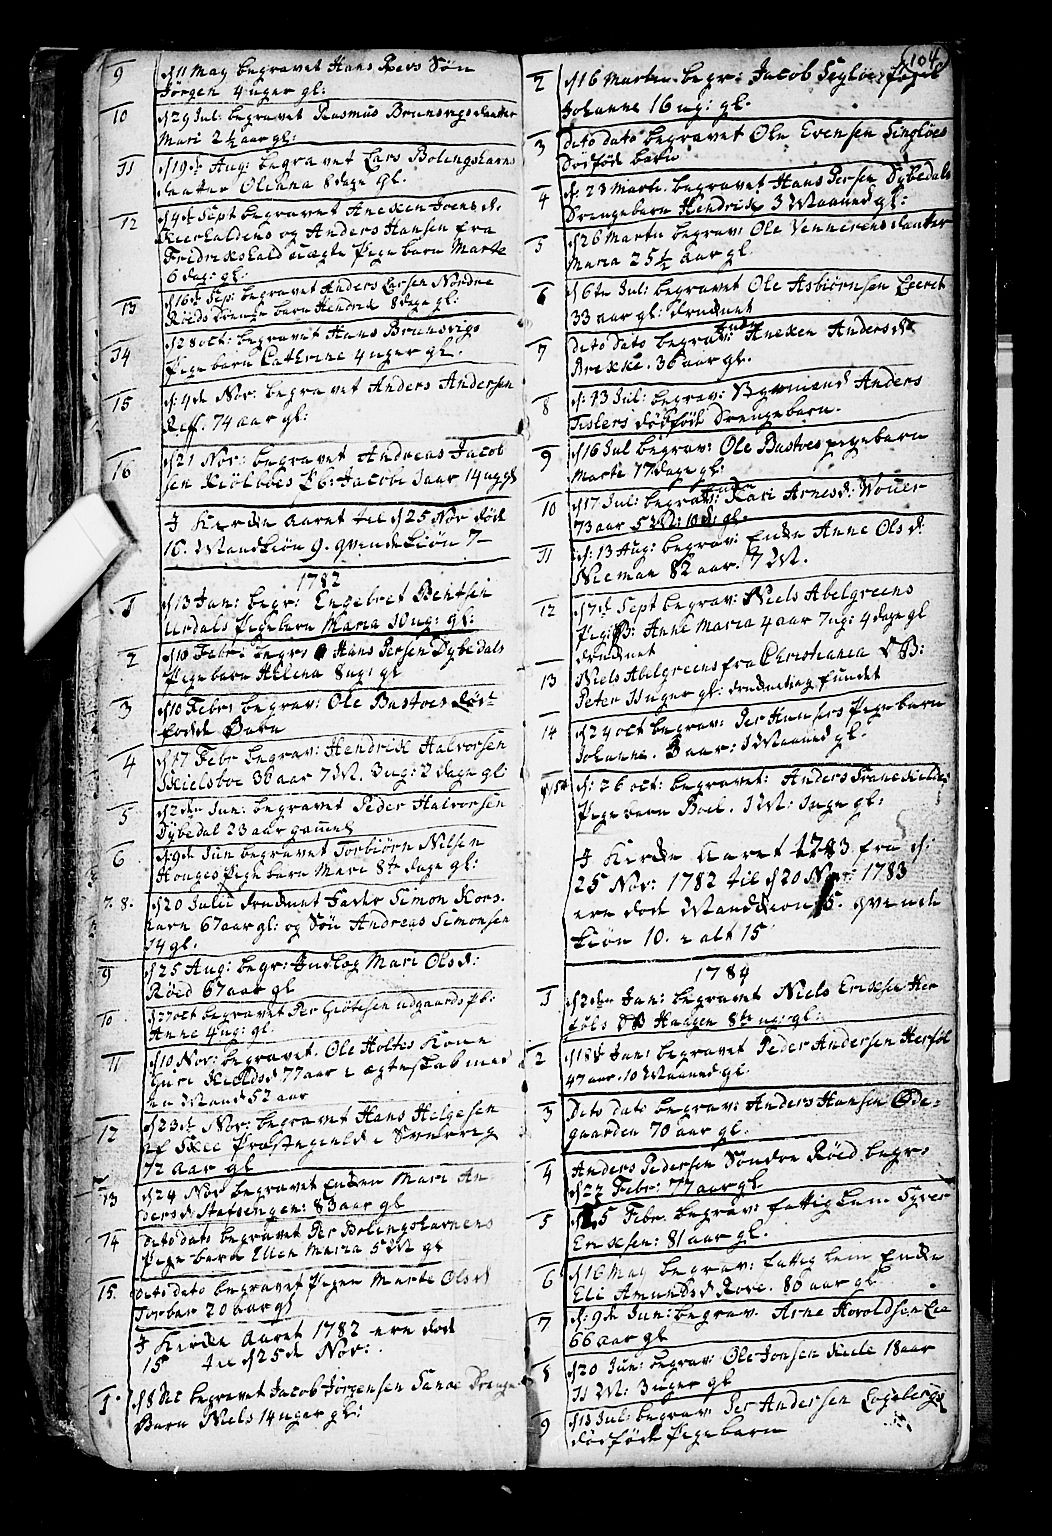 9 d 11 May begravet Hans Revs Søn
Jørgen 4 uger gl:
10 d 29 Jul: begravet Rasmus Brunsvigs daatter
Mari 2½ aar gl:
11 d 19de Aug: begravet Lars Bolingskarns
daater Oleana 8 dage gl.
12 d 4de Sept begravet Aneken Joens d.
og Anders Hansen fra
Fredrikshald uægte Pige barn Marte
6 dag: gl:
13 d 16de Sep: begravet Anders Larsen Nordre
Røeds Drenge barn Hendrik 8 dage gl:
14 d 28 oct: begravet Hans Brunsvigs
Pige barn Cathrine 4 uger gl.
15 d: 4de Nov: begravet Anders Andersen
Ref. 74 aar gl:
16 d 21 Nov: begravet Andreas Jacob
sen Kiølboes Pb: Jacobe 1 aar 14 ug gl
I Kirke Aaret til d 25 Nov døde
16. Mandkiøn 9. qvindekiøn 7
1782
1 d 13 Jan: begr: Engebret Bentsen
Urdals Pigebarn Maria 10 ug: gl:
2 d 10 Febr: begr: Hans Persen Dybedals
Pige barn Helena 8 ug: gl
3 d 10 Febr: begrav: Ole Bastoes Død
fødde Barn
4 d 17 Febr begrav: Hendrik Halvorsen
Skielsboe 36 aar 7 M. 3 ug: 2 dage gl:
5 d 2den Jun: begravet Peder Halvorsen
Dybedal 23 aar gammel
6 d: 9de Jun begravet Torbiørn Nilsen
Houges Pige barn Mari 8te dage gl:
7. 8. d 20 Julii druknet Fader Simon Kors-
tarn 67 aar gl: og Søn Andreas Simonsen
14 gl.
9 d 25 Aug: begr: Indlog Mari Olsd:
Røed 67 aar gl
10 d 27 oct begravet Per Giøtesen udgaards Pb:
Anne 4 ug: gl.
11 d 10 Nov: begravet. Ole Holtes Kone
Guri Kieldsd 77 aar i ægteskab med
en Mand 52 aar
12 d 23de Nov: begravet Hans Helgesen
af Skee Præstegield i Sverrig
72 Aar gl
13 d 24 Nov begravet Enken Mari An
dersd: Stutsengen: 83 aar gl
14 dito dato begravet Per Bolingskarnens
Pige barn Ellen Maria 5 M gl
15. dito dato begravet Pigen Marte Olsd
Torber 20 aar gl
I Kirke Aaret 1782 ere død
15 til d 25de Nov:
1 d 8 De begravet Jacob Jørgensen Sanne Drenge
Barn Niels 14 uger gl:
(104
2 d 16 Marten: begr: Jacob Segloes pigeb
Johanne 16 ug: gl.
3 dito dato begravet Ole Evensen Singløes
dødfød barn
4 d. 23 Marti. begravet Hans Persen Dybedals
Drengebarn Hendrik 3 Maaned gl:
5 d 26 Marti begrav: Ole Vennerens daatter
Maria 25½ aar gl.
6 d 6te Jul: begravet Ole Asbiørnsen
33 aar gl: druknet
7 dito dato begrav: Enken Aneken Andersdr
Brekke. 36 aar gl.
8 d: 13 Jul: begrav: Bymand Anders
Tislers dødfød Drengebarn.
9 d 16 Jul begrav: Ole Bastoes pigebarn
Marte 17 dage gl:
10 d 17 Jul: begrav: Enken Kari Arnesd: Wouer
73 aar 5 M: 10 d: gl.
11 d: 13 Aug: begrav: Enke Anne Olsd:
Nieman 82 aar. 7 M.
12 d 7de Sept begrav: Niels Abelgreens
Pige B: Anne Maria 4 aar 7 ug: 4 dage gl
druknet
13 Niels Abelgreens fra Christiania DB:
Peter 11 uger gl: drukneting fundet
14 d 24 oct begrav: Per Hansens Pige barn
Johanne. 3 aar: 1 Maaned gl.
15 d: 26 oct: begravet: Anders
Pige barn Boel. 1 M: gl:
I Kirke Aaret 1783 fra d:
25 Nov: 1782 til d 20 Nov: 1783
ere døde Mandkiøn 5. qvinde
kiøn 10. i alt 15
1784
1 d 2den Jan: begravet Niels Eriksen Her
føls DB Haagen 8te ug: gl:
2 d 18de Jan: begravet Peder Andersen Herføl
47 aar. 10 Maaned gl:
3 Dito dato begrav: Anders Hansen Øde-
gaarden 70 aar gl.
4 Anders Pedersen Søndre Røed begr:
d 22 Febr: 77 aar gl
5 d 25 Febr. begrav: fattig Lem Syver
Eriksen: 81 aar gl.
6 d 16 May begrav: fattig lem Enke
Eli Amundsd Rove. 86 aar gl
7 d: 9de Jun: begrav. Arne Haroldsen Lie
66 aar gl
8 d 20 Jun: begrav: Ole Jonsen 18 aar
11 M: 3 uger gl
9 d 13 Jul: begrav: Per Andersen
dødfødt Pigebarn